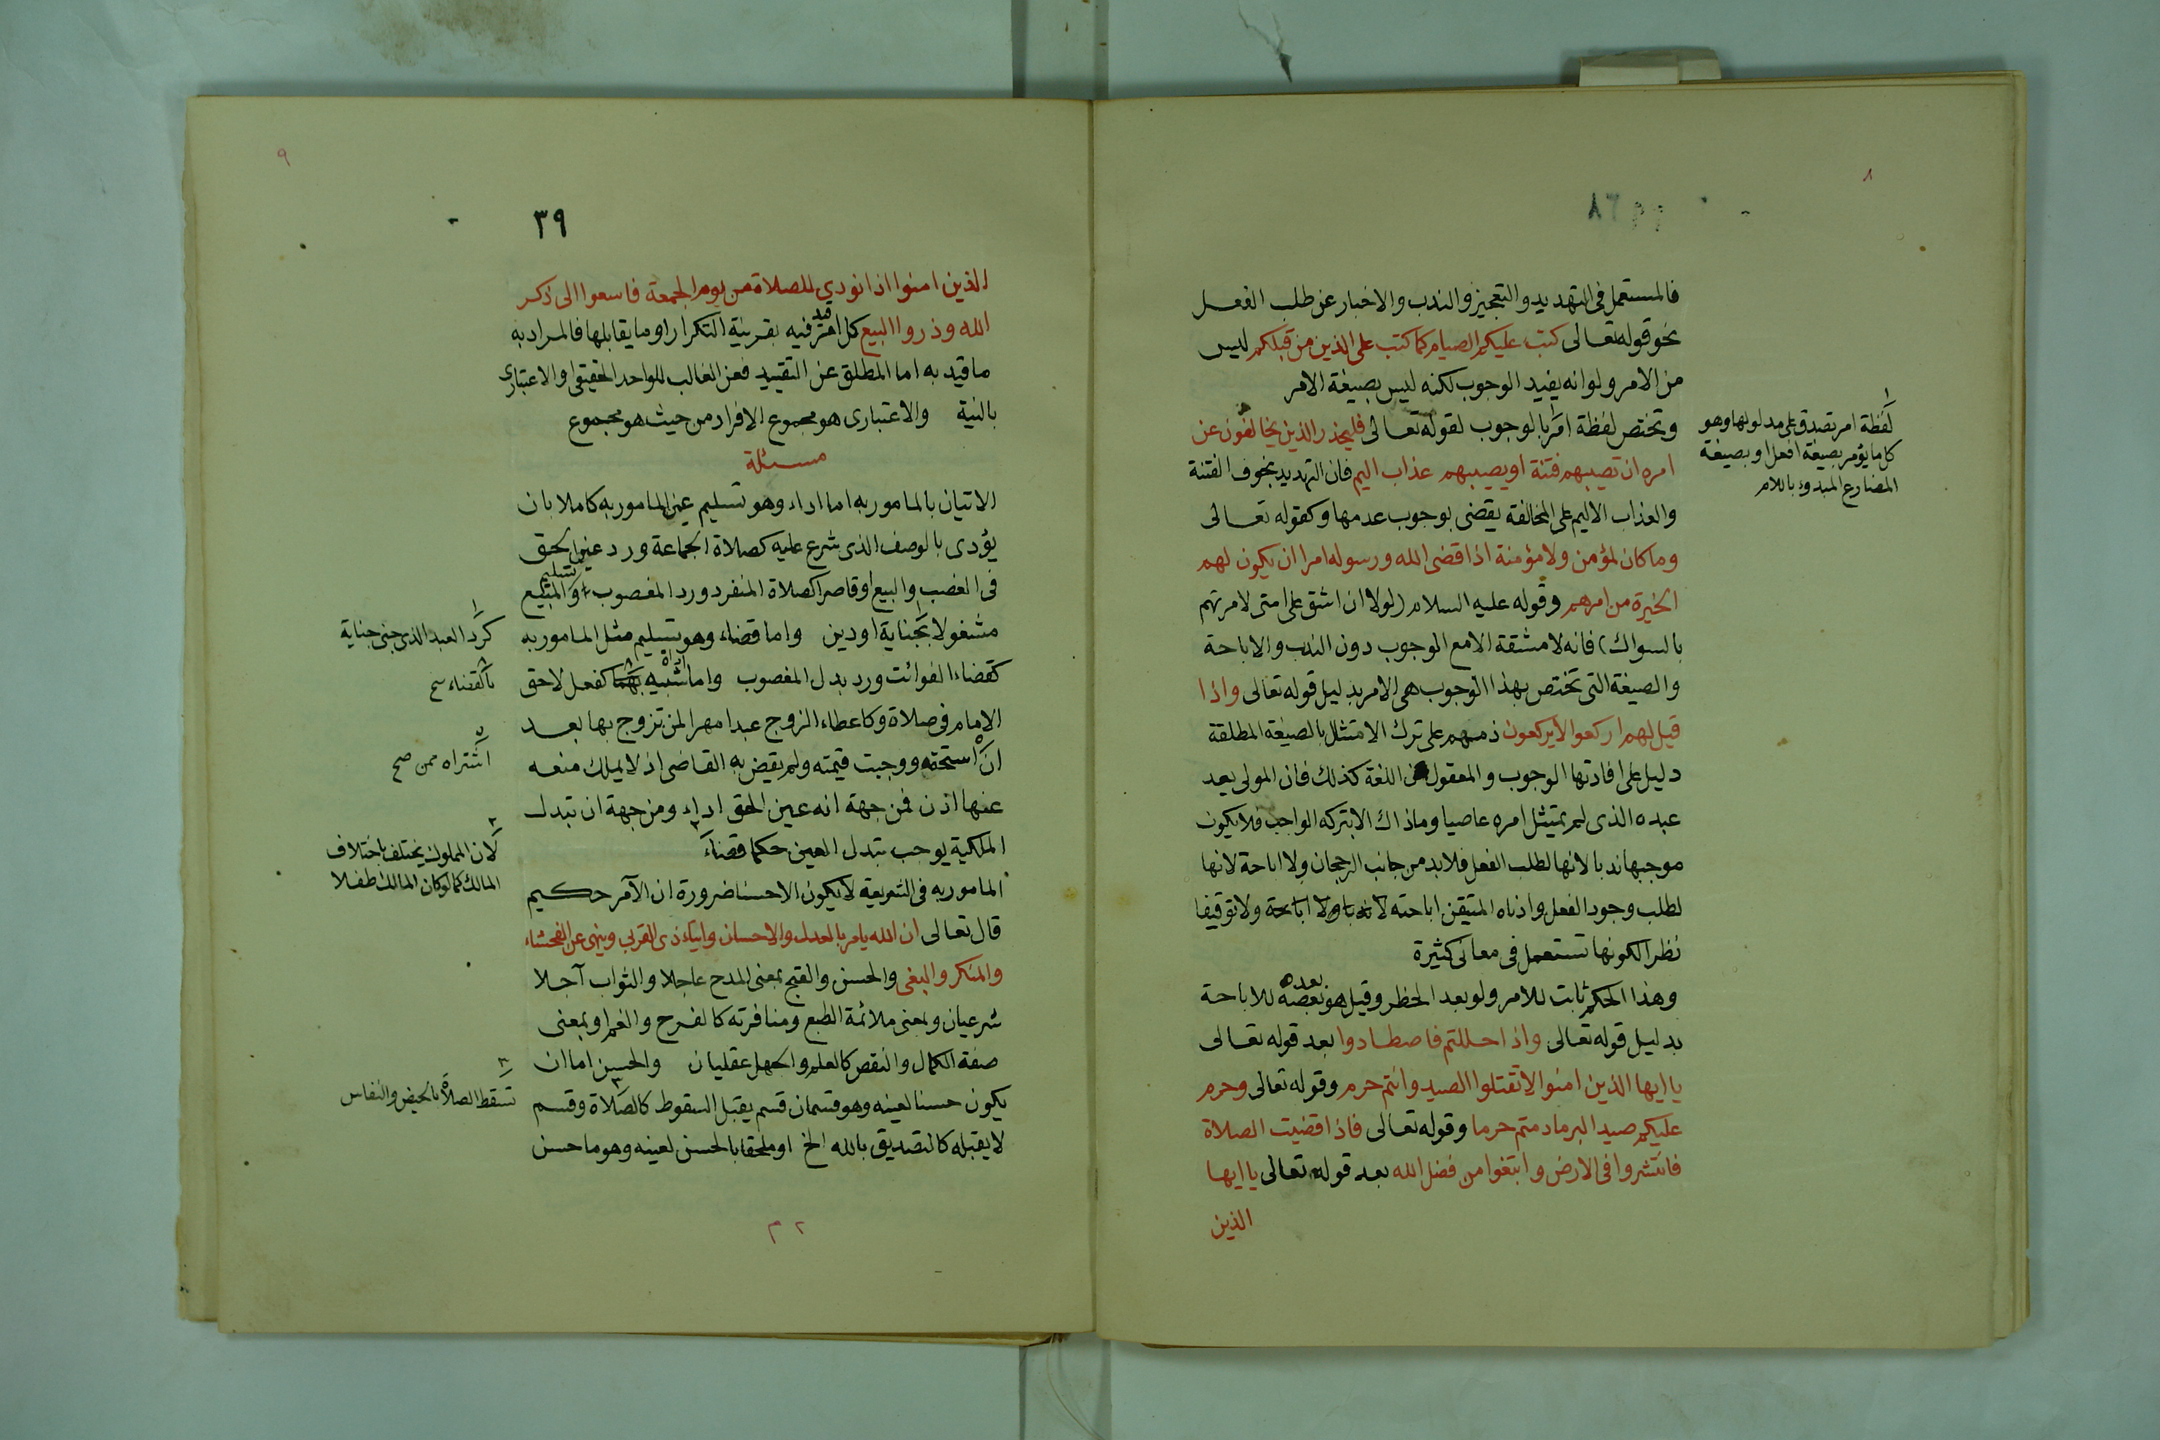 ٨
فالمستعمل في التهديد والتعجيز والندب والاخبار عن طلب الفعل
نحو قوله تعالى كتب عليكم الصيام كما كتب على الذين من قبلكم ليس
من الامر ولو انه يفيد الوجوب لكنه ليس بصيغة الامر
وتختص لفظة امر بالوجوب لقوله تعالى فليحذر الذين يخالفون عن
امره ان تصيبهم فتنة او يصيبهم عذاب اليم فان التهديد بخوف الفتنة
والعذاب الاليم على المخالفة يقضي بوجوب عدمها وكقوله تعالى
وما كان لمؤمن ولا مؤمنة اذا قضى الله ورسوله امرا ان يكون لهم
الخيرة من امرهم وقوله عليه السلام (لولا ان اشق على امتي لامرتهم
بالسواك) فانه لا مشقة الا مع الوجوب دون الندب والاباحة
والصيغة التي تختص بهذا الوجوب هي الامر بدليل قوله تعالى واذا
قيل لهم اركعوا لا يركعون ذمهم على ترك الامتثال بالصيغة المطلقة
دليل على افادتها الوجوب والمعقول من اللغة كذلك فان المولى يعد
عبده الذي لم يمتثل امره عاصيا وما ذاك الا بتركه الواجب فلا يكون
موجبها ندبا لانها لطلب الفعل فلا بد من جانب الرجحان ولا اباحة لانها
لطلب وجود الفعل وادناه المتيقن اباحته لا ندبا ولا اباحة ولا توقيفا
نظرا لكونها تستعمل في معاني كثيرة
وهذا الحكم ثابت للامر ولو بعد الحظر وقيل هو بعده للاباحة
بدليل قوله تعالى واذا حللتم فاصطادوا بعد قوله تعالى
يا ايها الذين امنوا لا تقتلوا الصيد وانتم حرم وقوله تعالى وحرم
عليكم صيد البر ما دمتم حرما وقوله تعالى فاذا قضيت الصلاة
فانتشروا في الارض وابتغوا من فضل الله بعد قوله تعالى يا ايها
الذين
١
لفظة امر تصدق على مدلولها وهو
كل ما يؤمر بصيغة افعل او بصيغة
المضارع المبدوء باللام
٩
٣٩
الذين امنوا اذا نودي للصلاة من يوم الجمعة فاسعوا الى ذكر
الله وذروا البيع كل امر قيد فيه بقرينة التكرار او ما يقابلها فالمراد به
ما قيد به اما المطلق عن التقييد فعن الغالب للواحد الحقيقي او الاعتباري
بالنية والاعتباري هو مجموع الافراد من حيث هو مجموع
مسئلة
الاتيان بالمامور به اما اداء وهو تسليم عين المامور به كاملا بان
يؤدى بالوصف الذي شرع عليه كصلاة الجماعة ورد عين الحق
في الغصب والبيع او قاصرا كصلاة المنفرد ورد المغصوب وتسليم المبيع
مشغولا بجناية او دين واما قضاء وهو تسليم مثل المامور به
كقضاء الفوائت ورد بدل المغصوب واما شبيه كفعل لاحق
الامام في صلاة وكاعطاء الزوج عبدا مهرا لمن تزوج بها بعد
ان استحقه ووجبت قيمته ولم يقض به القاضي اذ لا يملك منعه
عنها اذن فمن جهة انه عين الحق اداء ومن جهة ان تبدل
الملكية يوجب تبدل العين حكما قضاء
المامور به في الشريعة لا يكون الا حسنا ضرورة ان الآمر حكيم
قال تعالى ان الله يامر بالعدل والاحسان وايتاء ذي القربى وينهى عن الفحشاء
والمنكر والبغي والحسن والقبح بمعنى المدح عاجلا والثواب آجلا
شرعيان وبمعنى ملائمة الطبع ومنافرته كالفرح والغم او بمعنى
صفة الكمال والنقص كالعلم والجهل عقليان والحسن اما ان
يكون حسنا لعينه وهو قسمان قسم يقبل السقوط كالصلاة وقسم
لا يقبله كالتصديق بالله الخ او ملحقا بالحسن لعينه وهو ما حسن
١
كرد العبد الذي جنى جناية
بالقضاء صح
٥
اشتراه ممن صح
٢
لان المملوك يختلف باختلاف
المالك كما لو كان المالك طفلا
٣
تسقط الصلاة بالحيض والنفاس
٢ م